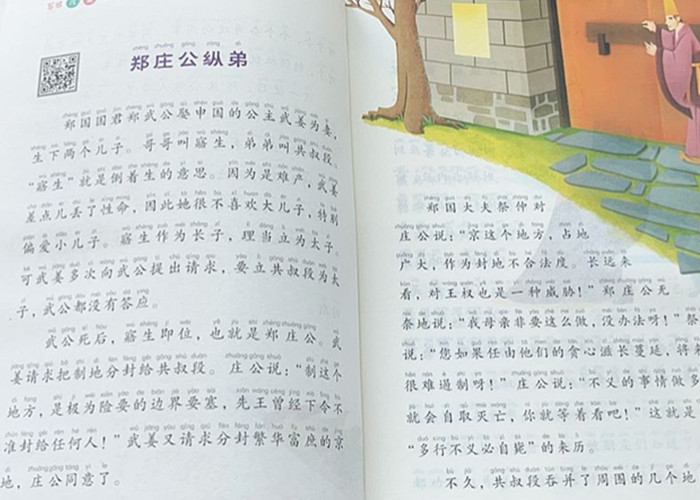 郑庄公纵弟
郑国国君郑武公娶申国的公主武姜为妻,
生下两个儿子。哥哥叫寤生,弟弟叫共叔段。
“寤生”就是倒着生的意思。因为是难产,武姜
差点儿丢了性命,因此她很不喜欢大儿子,特别
偏爱小儿子。寤生作为长子,理当立为太子。
可武姜多次向武公提出请求,要立共叔段为太
子,武公都没有答应。
武公死后,寤生即位,也就是郑庄公。武
姜请求把制地分封给共叔段。庄公说:“制这个
地方,是极为险要的边界要塞,先王曾经下令不
准封给任何人!”武姜又请求分封繁华富庶的京
地,庄公同意了。
郑国大夫祭仲对
庄公说:“京这个地方,占地
广大,作为封地不合法度。长远来
看,对王权也是一种威胁!”郑庄公无
奈地说:“我母亲非要这么做,没办法呀!”祭
说:“您如果任由他们的贪心滋长蔓延,将
很难遏制呀!”庄公说:“不义的事情做多
就会自取灭亡,你就等着看吧!”这就是
“多行不义必自毙”的来历。
不久,共叔段吞并了周围的几个地